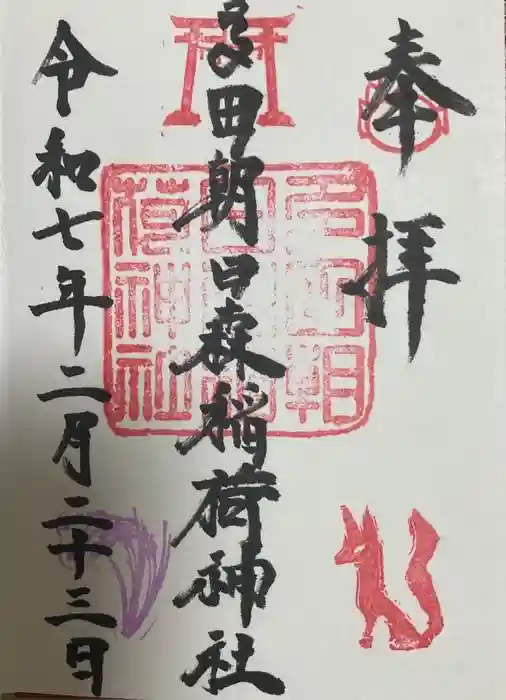 奉拝
多田朝日森稲荷神社
令和七年二月二十三日
多田朝
日森稲
荷神社